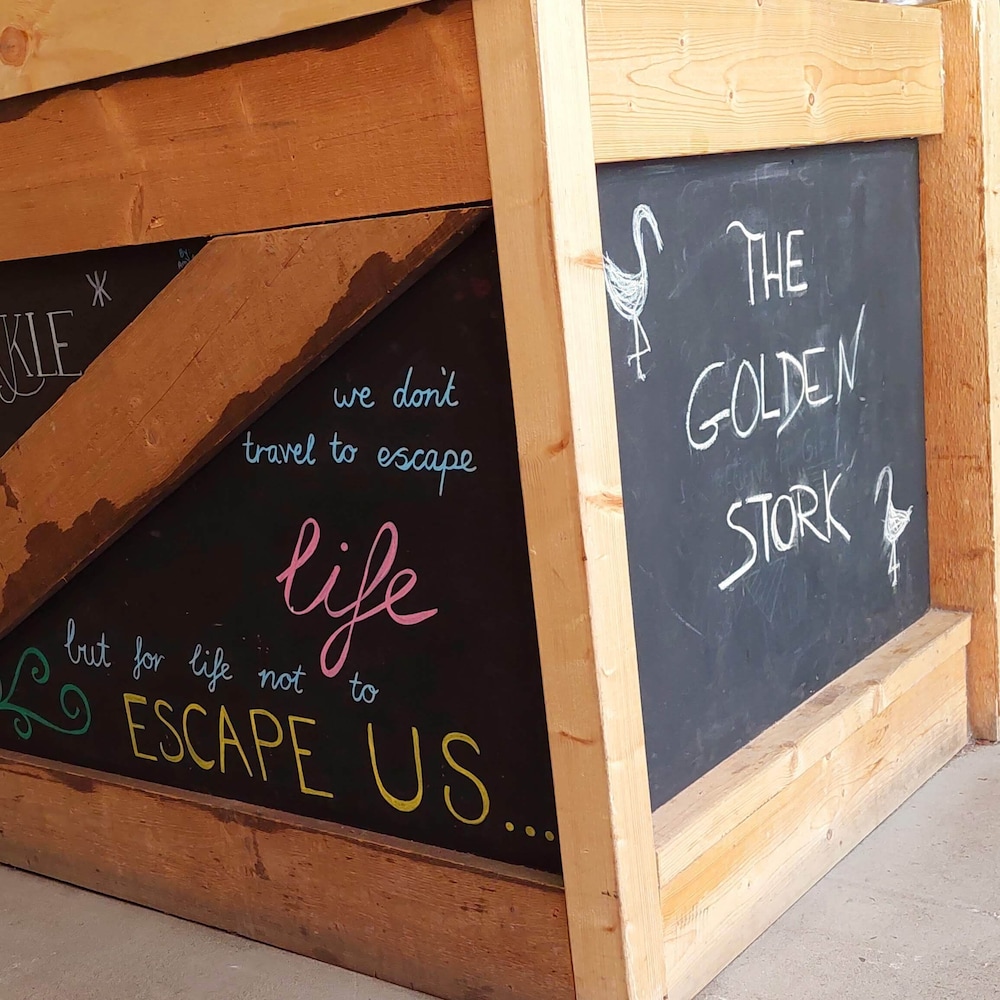 KLE
we don't
travel to escape
life
but for life not to
ESCAPE US...
THE
GOLDEN
STORK